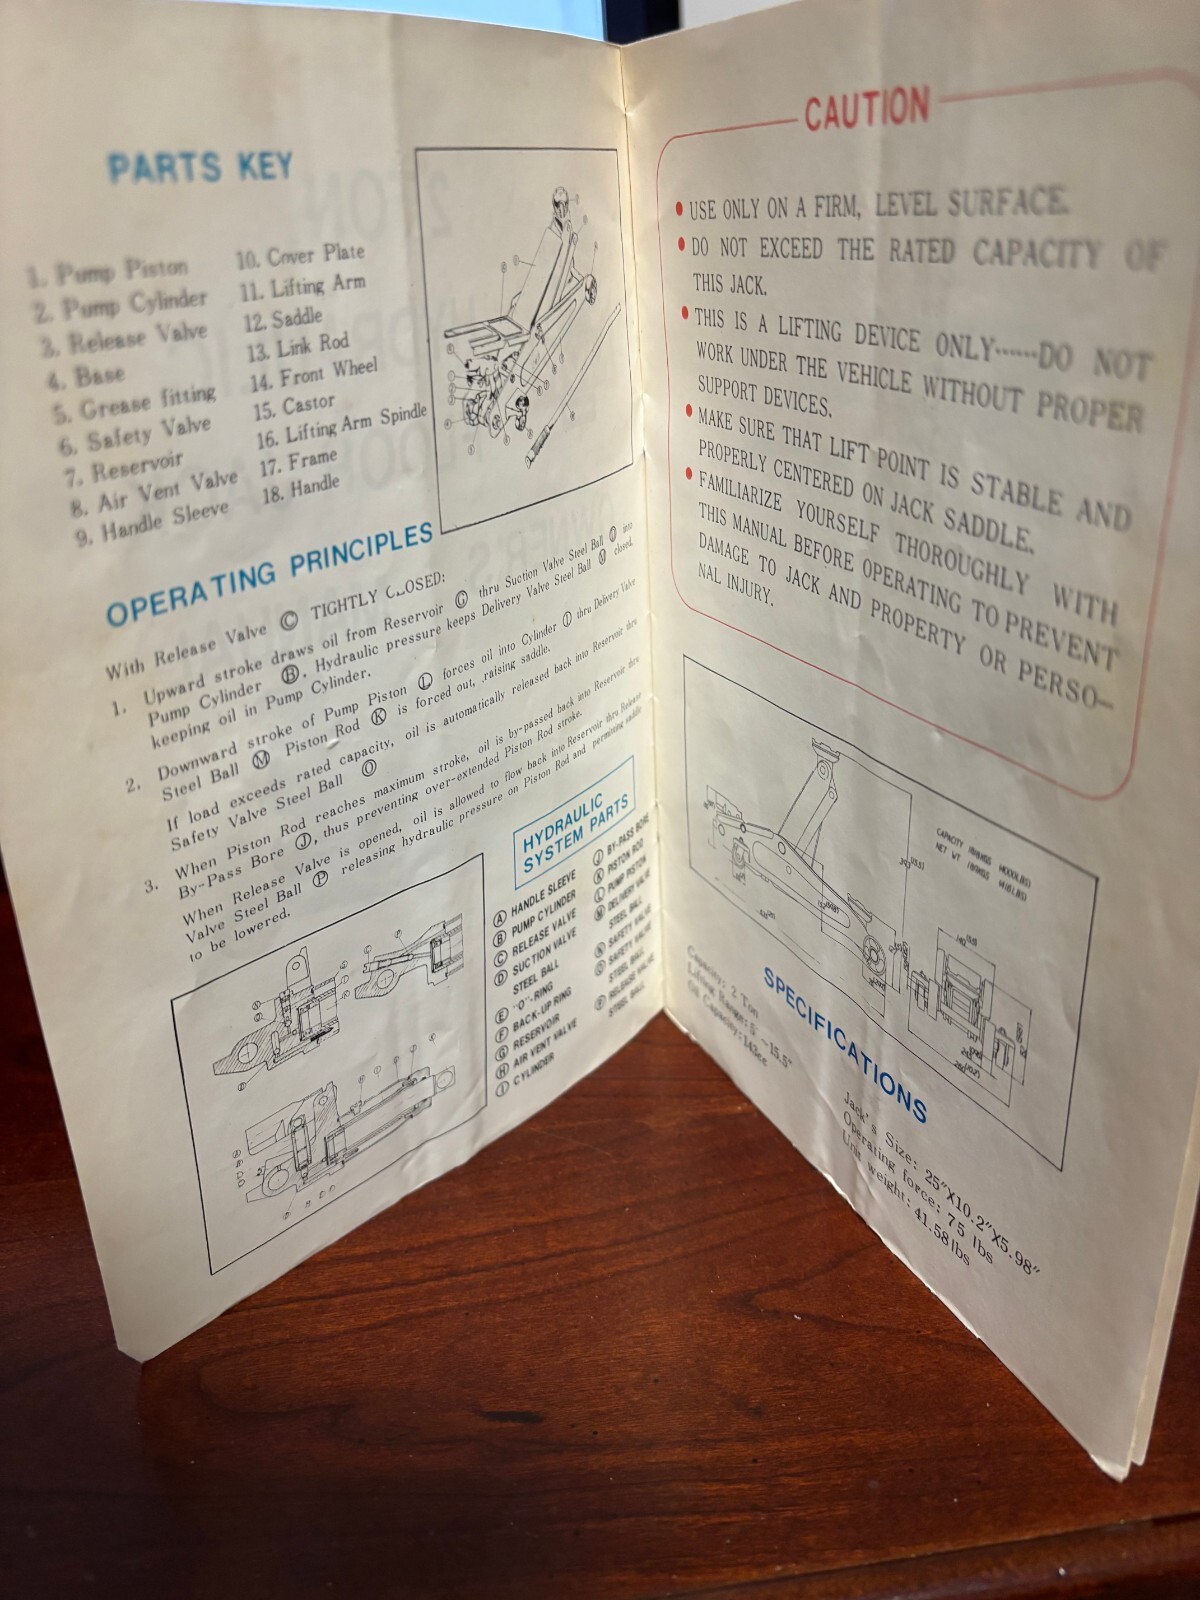 PARTS KEY
1. Pump Piston
2. Pump Cylinder
3. Release Valve
4. Base
5. Grease fitting
6. Safety Valve
7. Reservoir
8. Air Vent Valve
9. Handle Sleeve
10. Cover Plate
11. Lifting Arm
12. Saddle
13. Link Rod
14. Front Wheel
15. Castor
16. Lifting Arm Spindle
17. Frame
18. Handle
OPERATING PRINCIPLES
With Release Valve Ⓒ TIGHTLY CLOSED:
1. Upward stroke draws oil from Reservoir Ⓖ thru Suction Valve Steel Ball Ⓓ into
Pump Cylinder Ⓑ. Hydraulic pressure keeps Delivery Valve Steel Ball Ⓜ closed,
keeping oil in Pump Cylinder.
2. Downward stroke of Pump Piston Ⓛ forces oil into Cylinder Ⓘ thru Delivery Valve
Steel Ball Ⓜ Piston Rod Ⓚ is forced out, raising saddle.
If load exceeds rated capacity, oil is automatically released back into Reservoir thru
Safety Valve Steel Ball Ⓞ
3. When Piston Rod reaches maximum stroke, oil is by-passed back into Reservoir thru
By-Pass Bore Ⓙ, thus preventing over-extended Piston Rod stroke.
When Release Valve is opened, oil is allowed to flow back into Reservoir thru Release
Valve Steel Ball Ⓟ releasing hydraulic pressure on Piston Rod and permitting saddle
to be lowered.
HYDRAULIC
SYSTEM PARTS
Ⓐ HANDLE SLEEVE
Ⓑ PUMP CYLINDER
Ⓒ RELEASE VALVE
Ⓓ SUCTION VALVE
STEEL BALL
Ⓔ "O"-RING
Ⓕ BACK-UP RING
Ⓖ RESERVOIR
Ⓗ AIR VENT VALVE
Ⓘ CYLINDER
Ⓙ BY-PASS BORE
Ⓚ PISTON ROD
Ⓛ PUMP PISTON
Ⓜ DELIVERY VALVE
STEEL BALL
Ⓝ SAFETY VALVE
Ⓞ SAFETY VALVE
STEEL BALL
Ⓟ RELEASE VALVE
STEEL BALL
CAUTION
• USE ONLY ON A FIRM, LEVEL SURFACE.
• DO NOT EXCEED THE RATED CAPACITY OF
THIS JACK.
• THIS IS A LIFTING DEVICE ONLY······DO NOT
WORK UNDER THE VEHICLE WITHOUT PROPER
SUPPORT DEVICES.
• MAKE SURE THAT LIFT POINT IS STABLE AND
PROPERLY CENTERED ON JACK SADDLE.
• FAMILIARIZE YOURSELF THOROUGHLY WITH
THIS MANUAL BEFORE OPERATING TO PREVENT
DAMAGE TO JACK AND PROPERTY OR PERSO-
NAL INJURY.
CAPACITY
NET WT
SPECIFICATIONS
Capacity: 2 Ton
Lifting Range: 5" ~15.5"
Oil Capacity: 143cc
Jack's Size: 25"X10.2"X5.98"
Operating force: 75 lbs
Unit weight: 41.58lbs